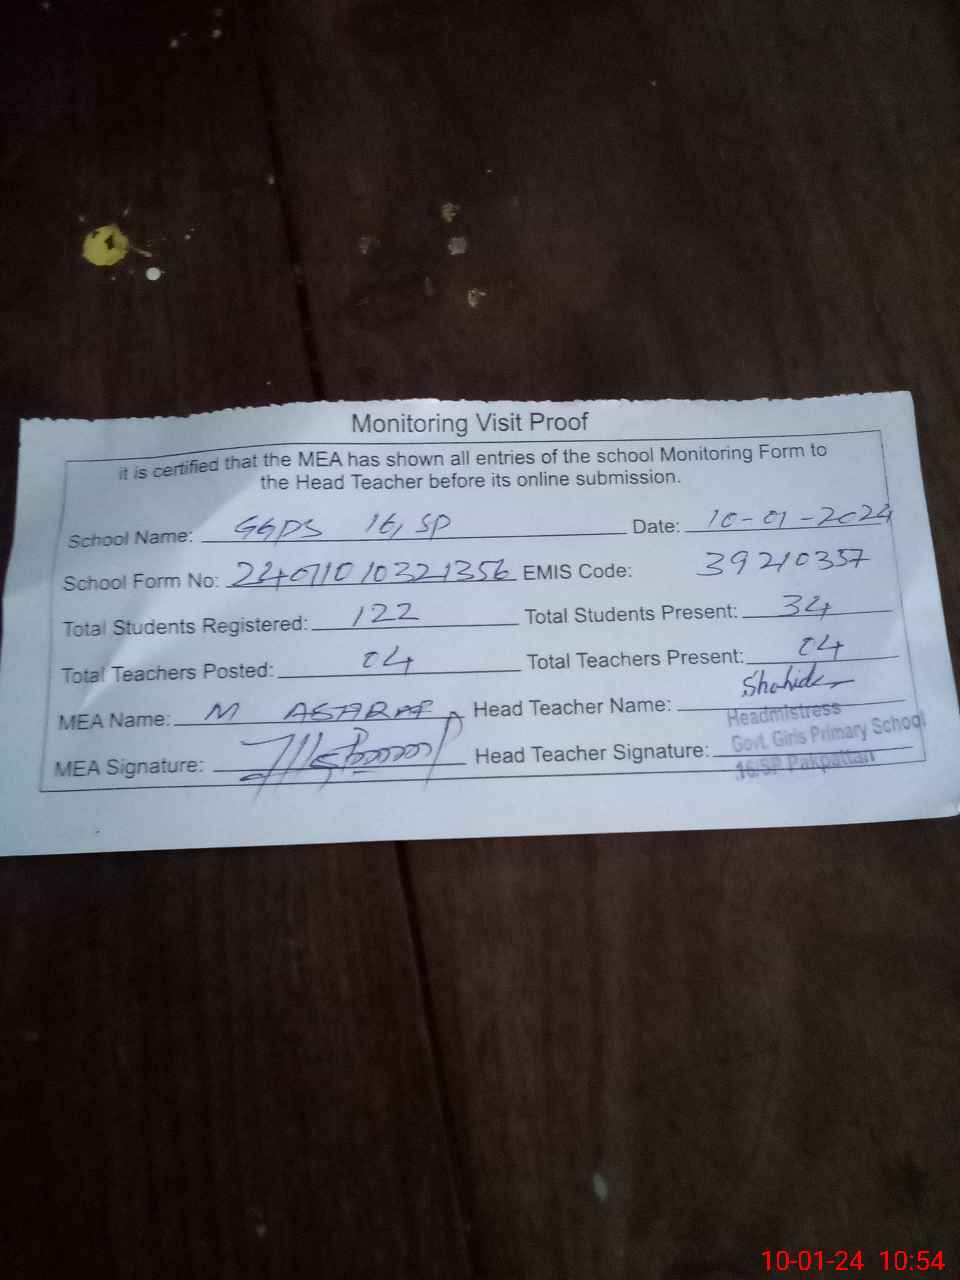 Monitoring Visit Proof
it is certified that the MEA has shown all entries of the school Monitoring Form to
the Head Teacher before its online submission.
School Name: GGPS 16, SP Date: 10-01-2024
School Form No: 2401101 0321356 EMIS Code: 39210357
Total Students Registered: 122 Total Students Present: 34
Total Teachers Posted: 04 Total Teachers Present: 04
MEA Name: M ASHRAF Head Teacher Name: Shahida
MEA Signature: Head Teacher Signature:
Headmistress
Govt. Girls Primary School
16/SP Pakpattan
10-01-24 10:54